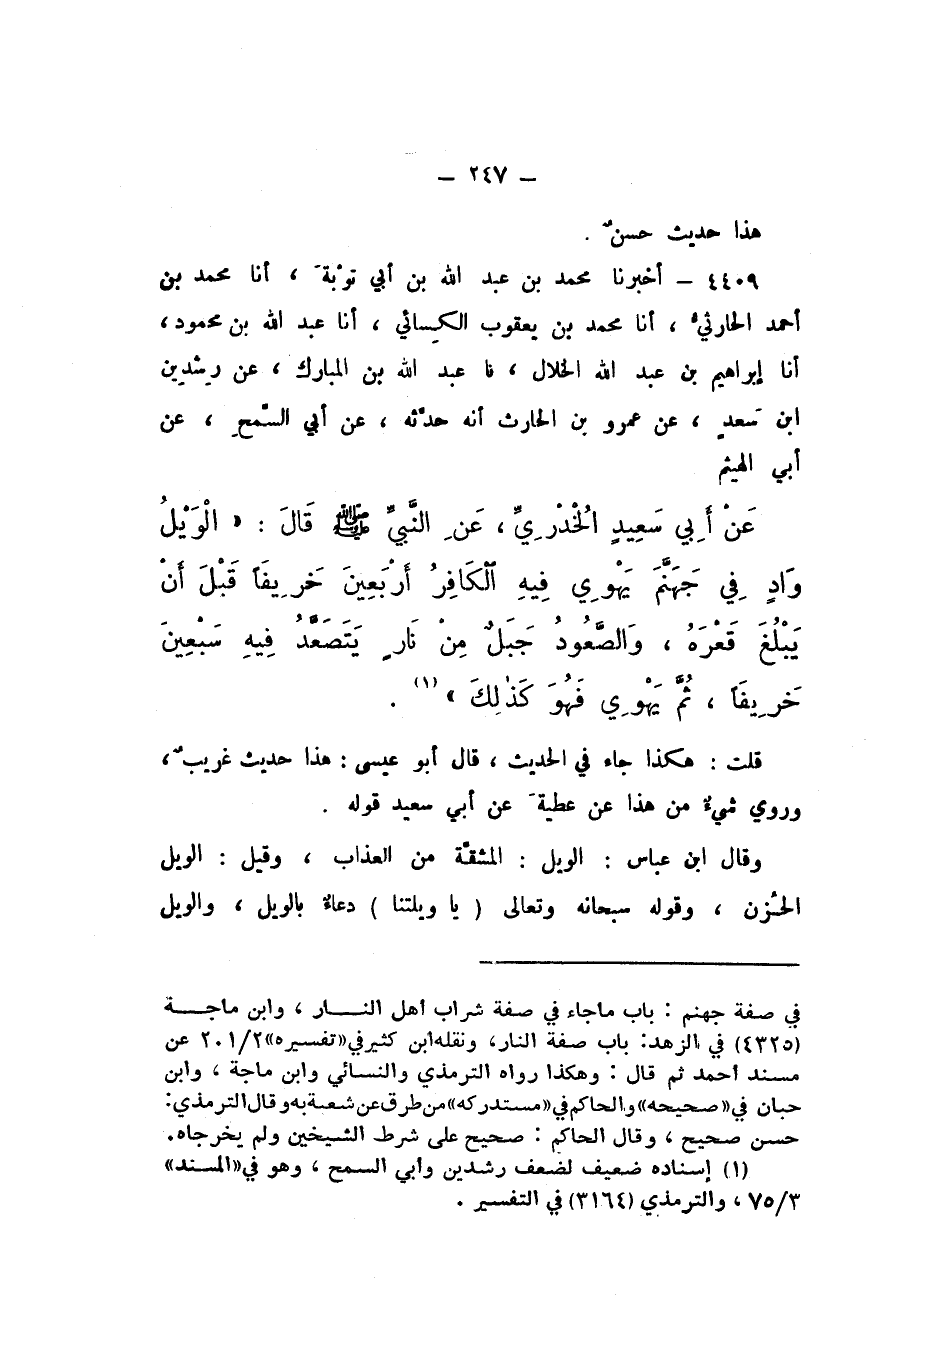 – ٢٤٧ –
هذا حديث حسنٌ .
٤٤٠٩ – أخبرنا محمد بن عبد الله بن أبي توْبةَ ، أنا محمد بن
أحمد الحارثيُّ ، أنا محمد بن يعقوب الكِسائي ، أنا عبد الله بن محمود،
أنا إبراهيم بن عبد الله الخلال ، نا عبد الله بن المبارك ، عن رِشْدِين
ابن سَعدٍ ، عن عمرو بن الحارث أنه حدَّثه ، عن أبي السَّمحِ ، عن
أبي الهيثم
عَنْ أَبِي سَعِيدٍ الْخُدْرِيِّ ، عَنِ النَّبِيِّ ﷺ قَالَ : « الْوَيْلُ
وَادٍ فِي جَهَنَّمَ يَهْوِي فِيهِ الْكَافِرُ أَرْبَعِينَ خَرِيفَاً قَبْلَ أَنْ
يَبْلُغَ قَعْرَهُ ، وَالصَّعُودُ جَبَلٌ مِنْ نَارٍ يَتَصَعَّدُ فِيهِ سَبْعِينَ
خَرِيفَاً ، ثُمَّ يَهْوِي فَهُوَ كَذٰلِكَ » (١) .
قلت : هكذا جاء في الحديث ، قال أبو عيسى : هذا حديث غريبٌ ،
وروي شيءٌ من هذا عن عطيةَ عن أبي سعيد قوله .
وقال ابن عباس : الويل : المشقَّة من العذاب ، وقيل : الويل
الحُزن ، وقوله سبحانه وتعالى ( يا ويلتنا ) دعاءٌ بالويل ، والويل
في صفة جهنم : باب ماجاء في صفة شراب أهل النــار ، وابن ماجــة
(٤٣٢٥) في الزهد: باب صفة النار، ونقله ابن كثير في «تفسيره» ٢٠١/٢ عن
مسند احمد ثم قال : وهكذا رواه الترمذي والنسائي وابن ماجة ، وابن
حبان في «صحيحه» والحاكم في «مستدركه» من طرق عن شعبة به وقال الترمذي:
حسن صحيح ، وقال الحاكم : صحيح على شرط الشيخين ولم يخرجاه.
(١) إسناده ضعيف لضعف رشدين وأبي السمح ، وهو في «المسند»
٧٥/٣ ، والترمذي (٣١٦٤) في التفسير .